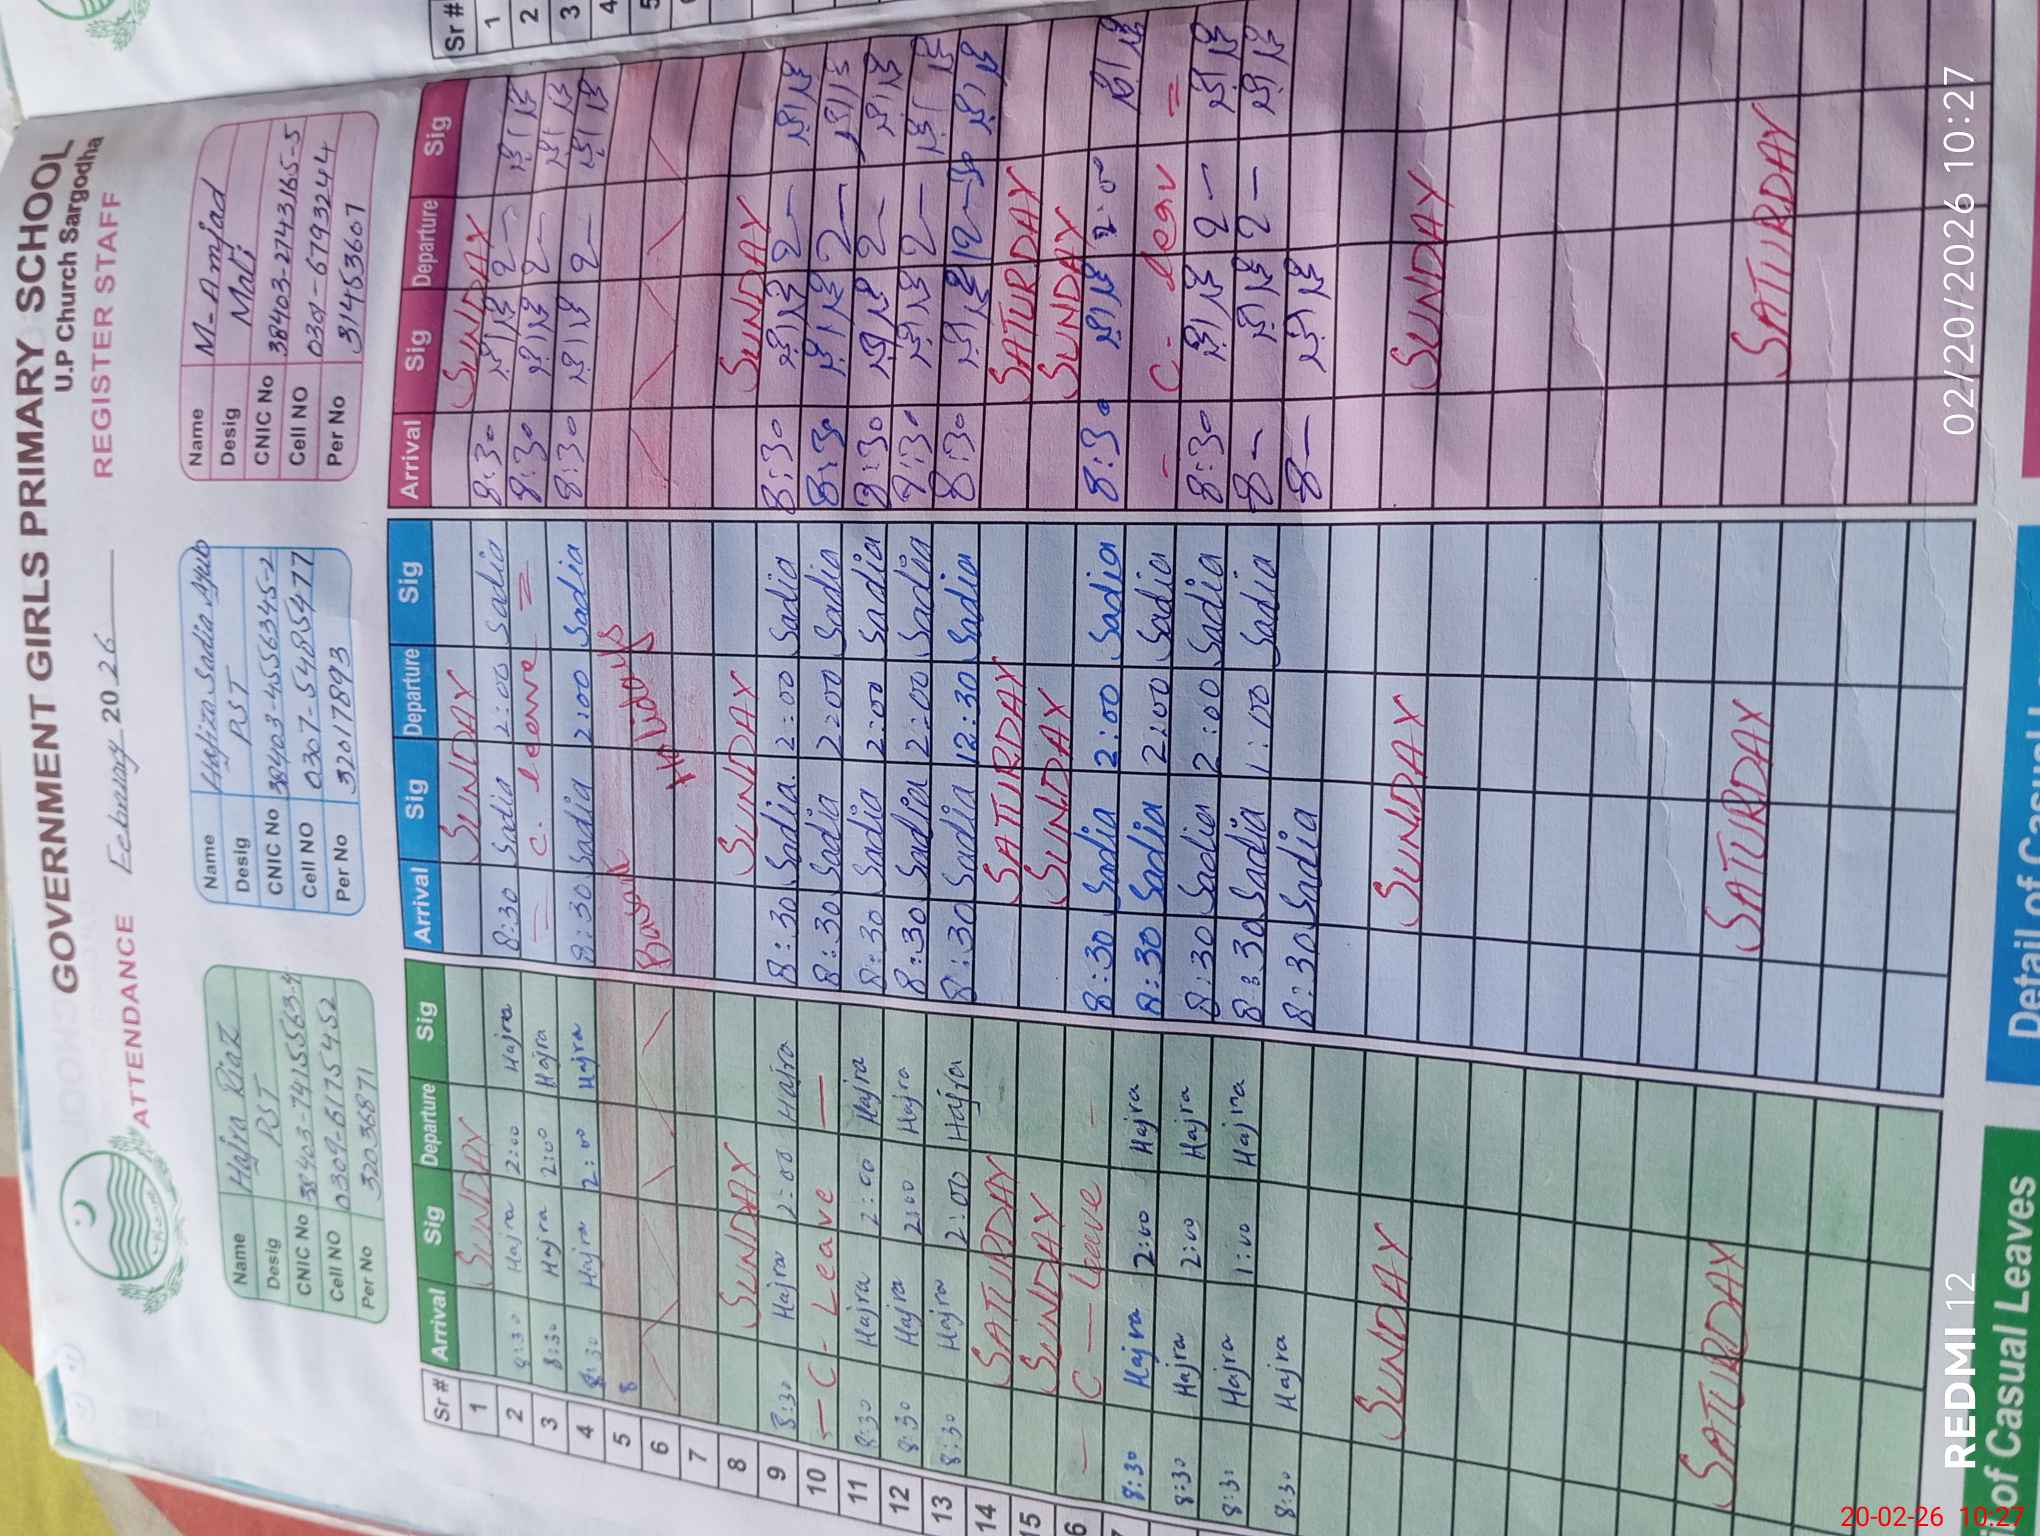 GOVERNMENT GIRLS PRIMARY SCHOOL
U.P Church Sargodha
ATTENDANCE February 2026 REGISTER STAFF
Name Hajra Riaz
Desig PST
CNIC No 38403-7415563-4
Cell NO 0309-6175452
Per No 32036871
Name Hafiza Sadia Ayub
Desig PST
CNIC No 38403-4556345-2
Cell NO 0307-5485477
Per No 32017893
Name M-Amjad
Desig Mali
CNIC No 38403-2743165-5
Cell NO 0301-6793244
Per No 31453607
Sr # Arrival Sig Departure Sig Arrival Sig Departure Sig Arrival Sig Departure Sig
1 SUNDAY SUNDAY SUNDAY
2 8:30 Hajra 2:00 Hajra 8:30 Sadia 2:00 Sadia 8:30 2-
3 8:30 Hajra 2:00 Hajra = C. leave = 8:30 2-
4 8:30 Hajra 2:00 Hajra 8:30 Sadia 2:00 Sadia 8:30 2-
5 8
6 Basant Holidays
7
8 SUNDAY SUNDAY SUNDAY
9 8:30 Hajra 2:00 Hajra 8:30 Sadia. 2:00 Sadia 8:30 2-
10 - C- Leave - 8:30 Sadia 2:00 Sadia 8:30 2-
11 8:30 Hajra 2:00 Hajra 8:30 Sadia 2:00 Sadia 8:30 2-
12 8:30 Hajra 2:00 Hajra 8:30 Sadia 2:00 Sadia 8:30 2-
13 8:30 Hajra 2:00 Hajra 8:30 Sadia 12:30 Sadia 8:30 12-30
14 SATURDAY SATURDAY SATURDAY
15 SUNDAY SUNDAY SUNDAY
6 - C - Leave - 8:30 Sadia 2:00 Sadia 8:30 2:00
8:30 Hajra 2:00 Hajra 8:30 Sadia 2:00 Sadia - C- leav =
8:30 Hajra 2:00 Hajra 8:30 Sadia 2:00 Sadia 8:30 2-
8:30 Hajra 1:00 Hajra 8:30 Sadia 1:00 Sadia 8- 2-
8:30 Hajra 8:30 Sadia 8-
SUNDAY SUNDAY SUNDAY
SATURDAY SATURDAY SATURDAY
of Casual Leaves
Detail of Casual
Sr #
1
2
3
4
5
REDMI 12
02/20/2026 10:27
20-02-26 10:27